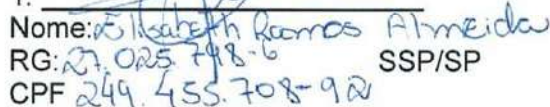 1.
Nome: Elisabeth Ramos Almeida
RG: 27.025.798-6 SSP/SP
CPF 249.455.708-92